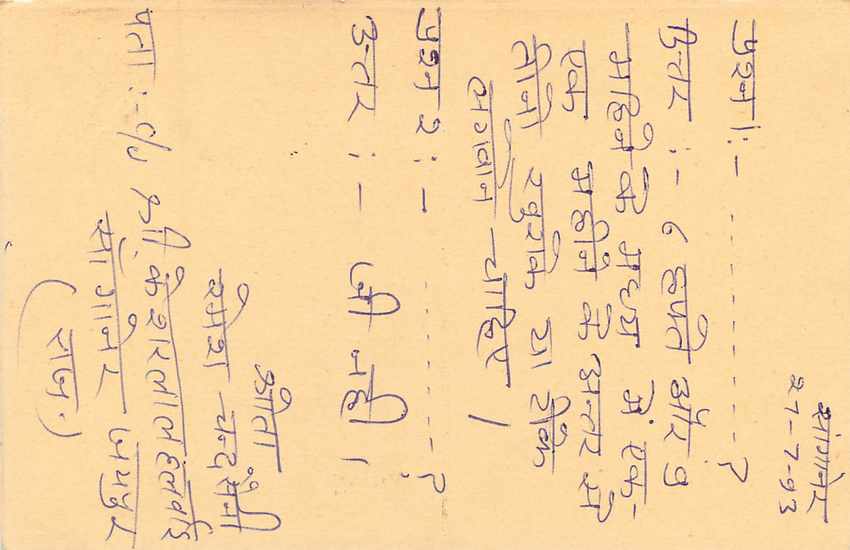 सांगानेर
२१-७-९३
प्रश्न १:- ..........?
उत्तर :- ६ हफ्ते और ९
महिने के मध्य में एक-
एक महीने के अन्तर से
तीनो खुराके या टीके
लगवाने चाहिए।
प्रश्न २:- ..........?
उत्तर :- जी नहीं।
श्रोता
रमेश चन्द सैनी
पता :- C/o श्री केशरलाल हलवाई
सांगानेर जयपुर
(राज.)